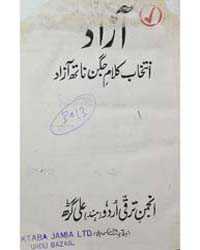 آزاد
انتخاب کلام جگن ناتھ آزاد
انجمن ترقی اردو (ہند) علی گڑھ
KTABA JAMIA LTD
URDU BAZAR,